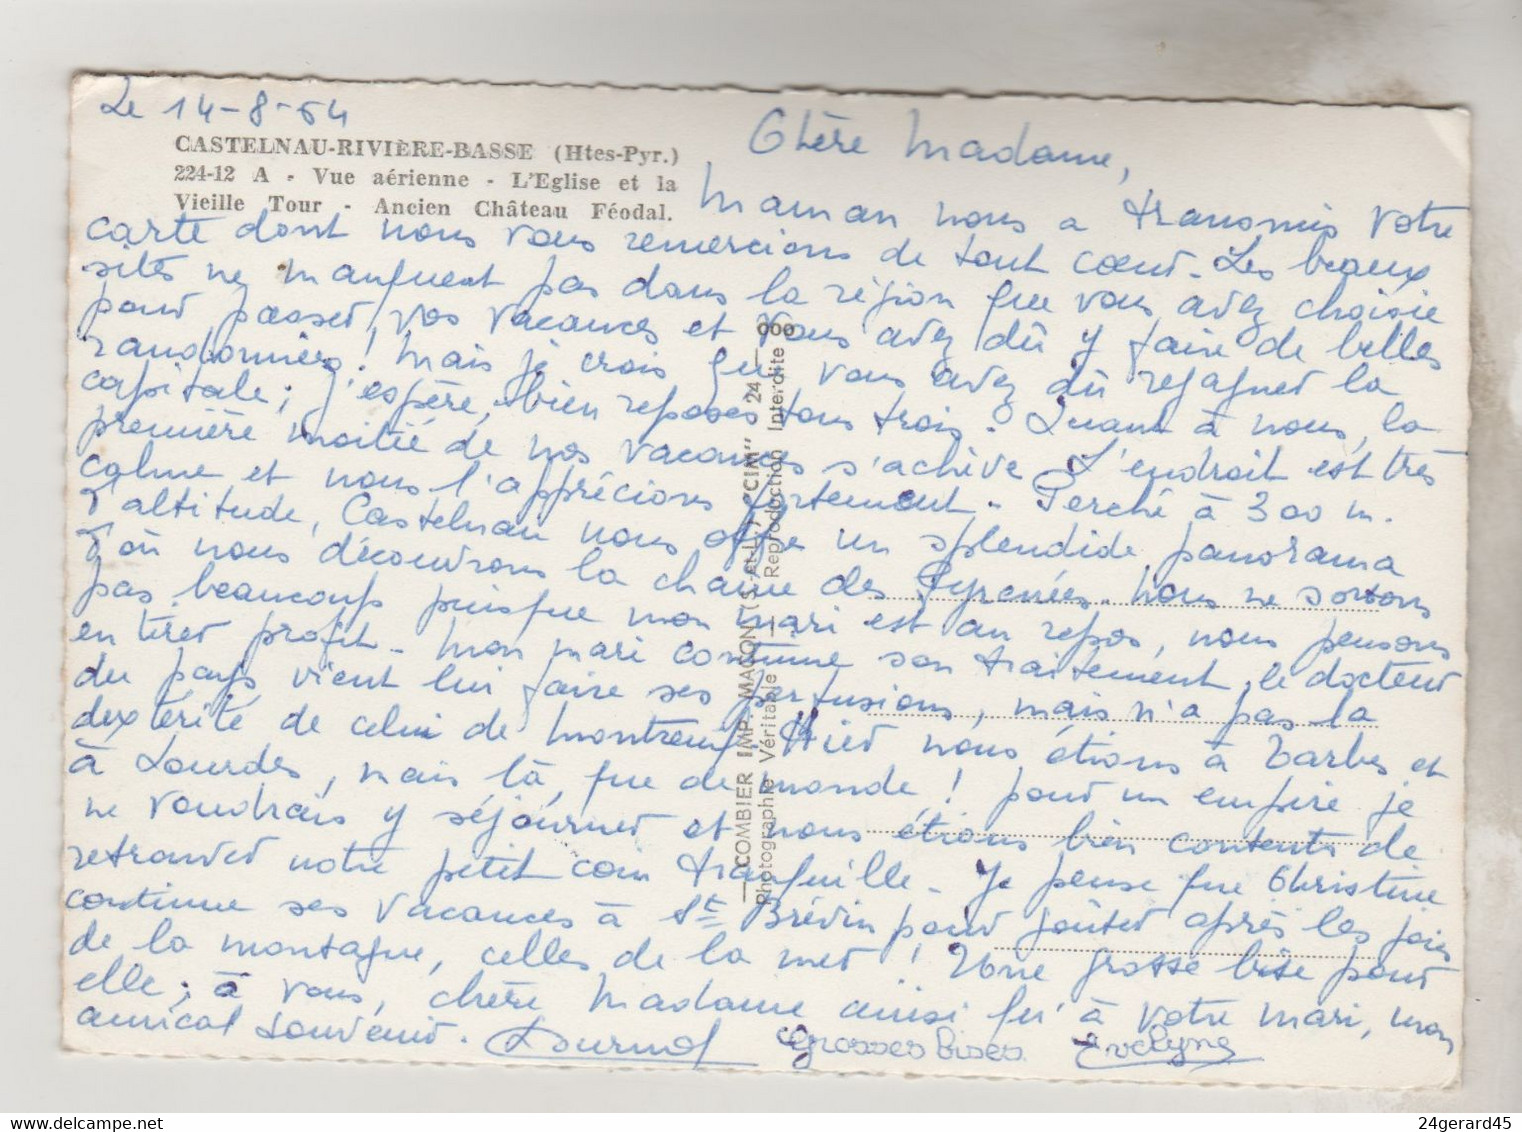 Le 14-8-64
CASTELNAU-RIVIÈRE-BASSE (Htes-Pyr.)
224-12 A - Vue aérienne - L'Eglise et la
Vieille Tour - Ancien Château Féodal.
Chère Madame,
Maman nous a transmis votre
carte dont nous vous remercions de tout coeur. Les beaux
sites ne manquent pas dans la région que vous avez choisie
pour passer vos vacances et vous avez dû y faire de belles
randonnées! Mais je crois que vous avez dû regagner la
capitale; j'espère, bien reposés tous trois. Quant à nous, la
première moitié de nos vacances s'achève. L'endroit est très
calme et nous l'apprécions fortement. Perché à 300 m.
d'altitude, Castelnau nous offre un splendide panorama
d'où nous découvrons la chaîne des Pyrénées. Nous ne sortons
pas beaucoup puisque mon mari est au repos, nous pensons
en tirer profit. Mon mari continue son traitement, le docteur
du pays vient lui faire ses perfusions, mais n'a pas la
dextérité de celui de Montreuil. Hier nous étions à Tarbes et
à Lourdes, mais là, que de monde! pour un empire je
ne voudrais y séjourner et nous étions bien contents de
retrouver notre petit coin tranquille. Je pense que Christine
continue ses vacances à St Brévin pour goûter après les joies
de la montagne, celles de la mer! Une grosse bise pour
elle; à vous, chère Madame ainsi qu'à votre mari, mon
amical souvenir.
Grosses bises Evelyne
COMBIER IMP. MACON (S.-et-L.) "CIM" 24 000
Photographie Véritable — Reproduction Interdite
24gerard45